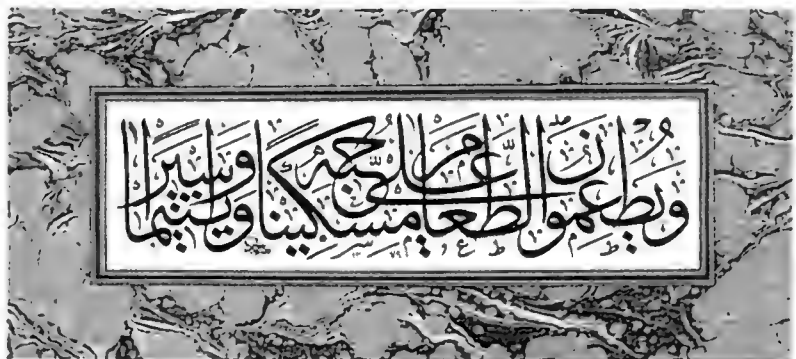 وَيُطْعِمُونَ الطَّعَامَ عَلَى حُبِّهِ مِسْكِينًا وَيَتِيمًا وَاَسِيرًا